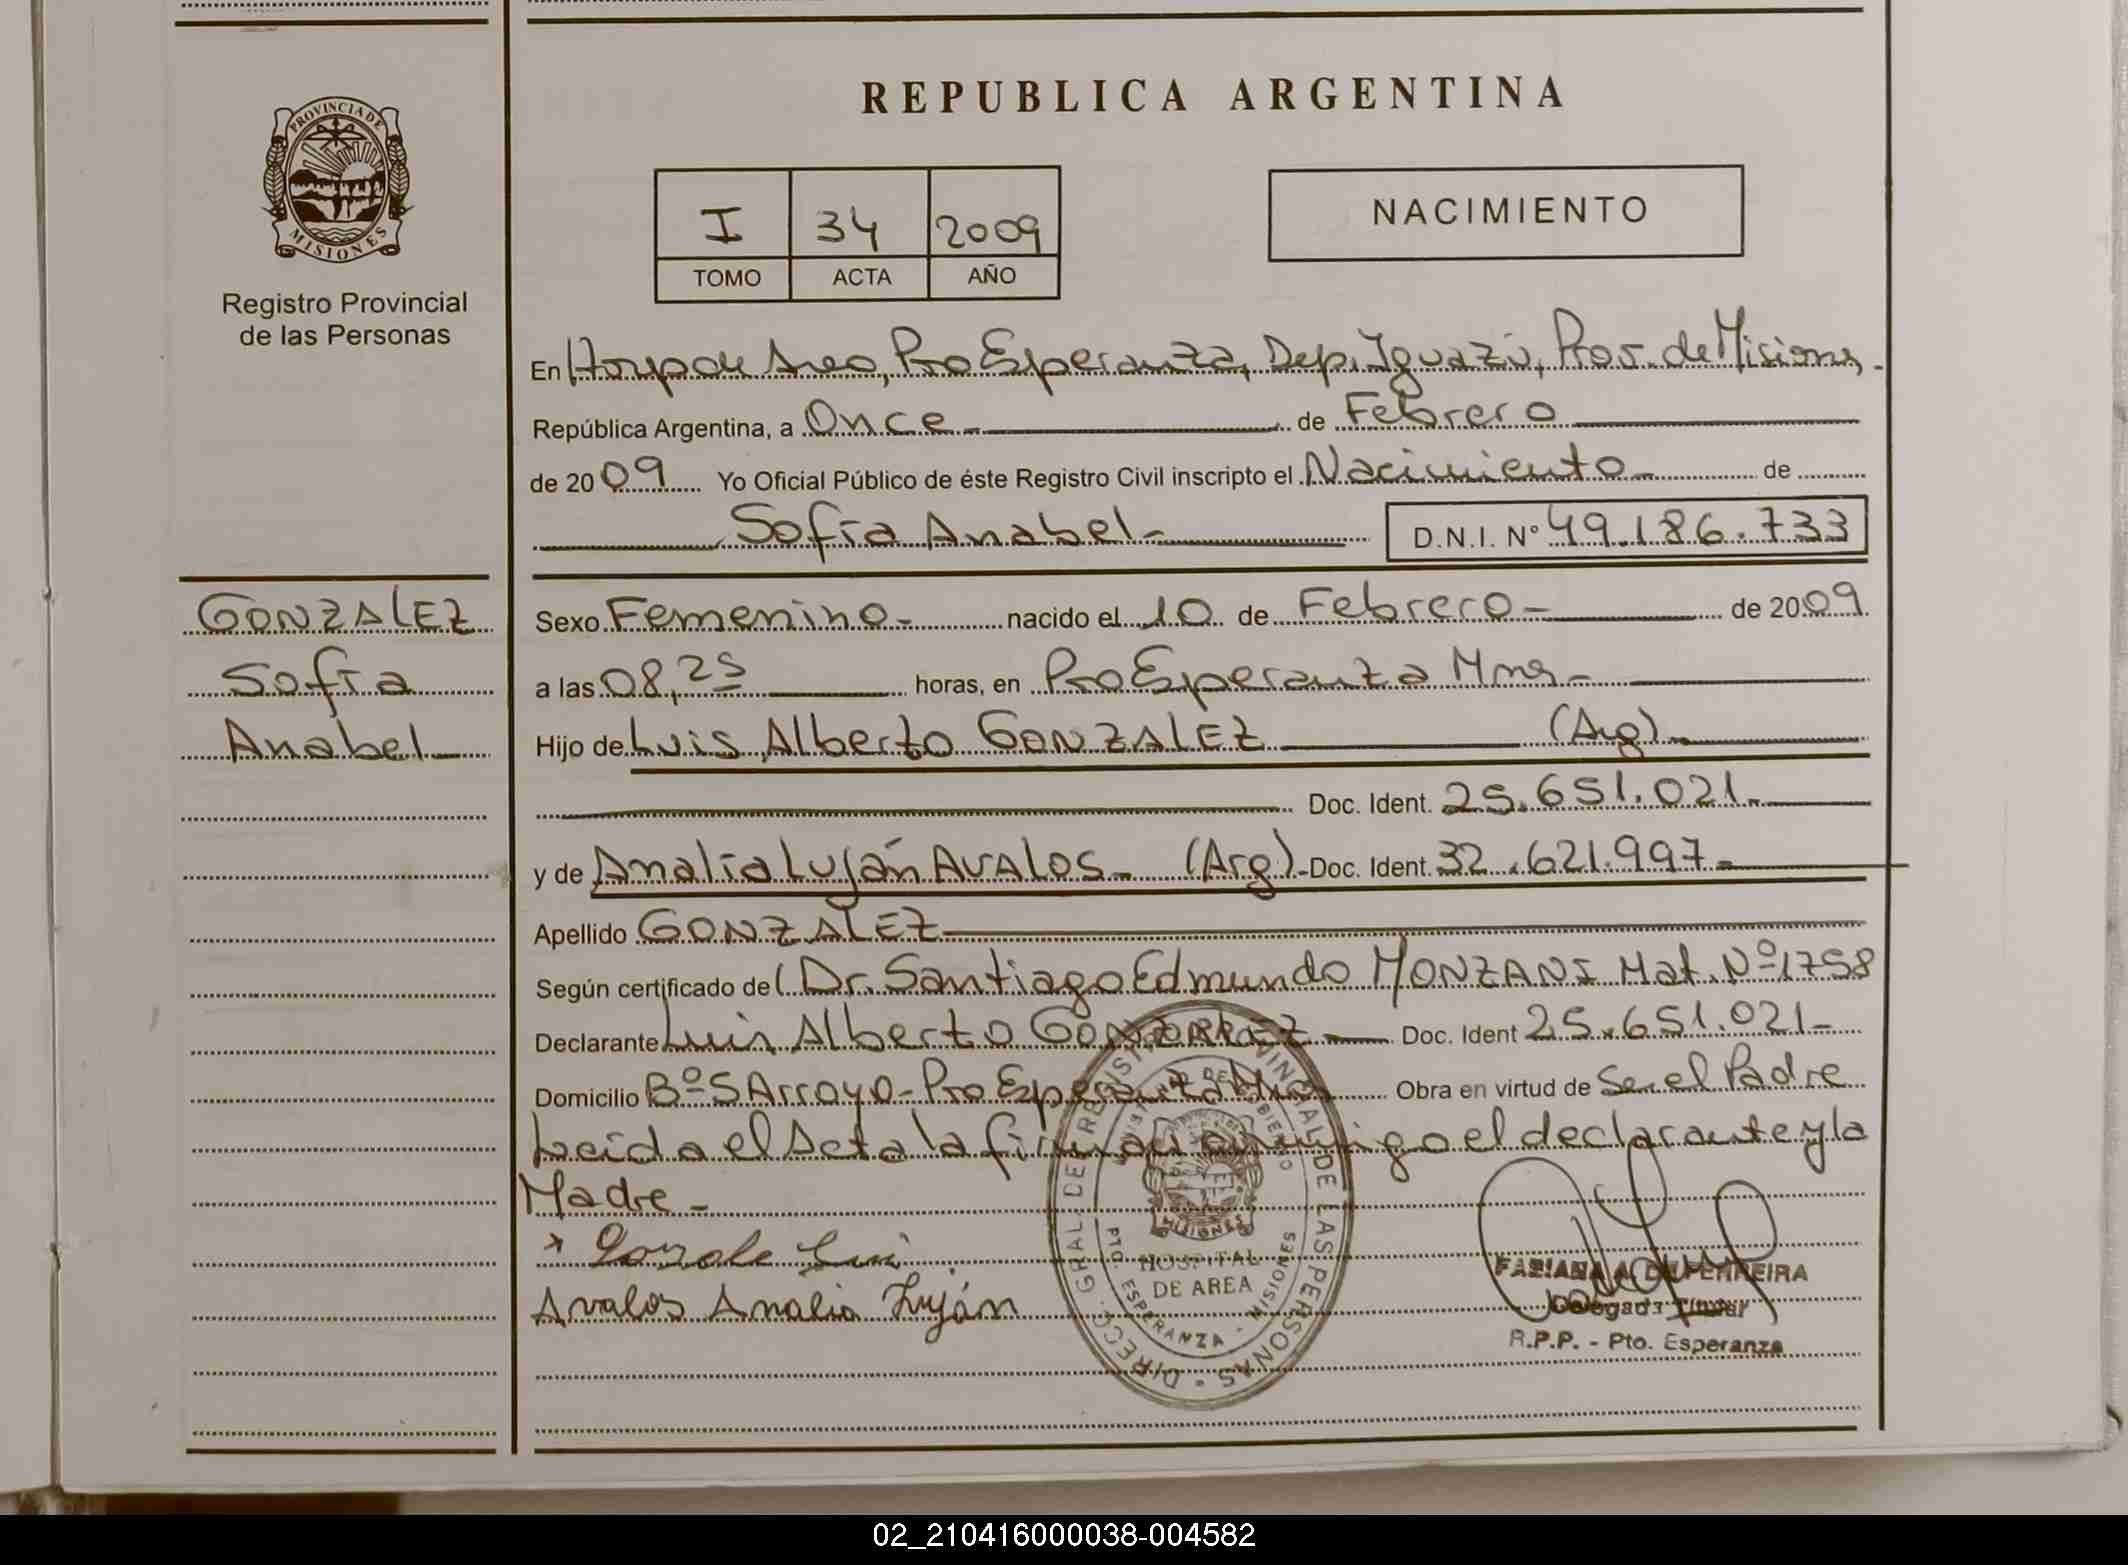 REPUBLICA ARGENTINA
PROVINCIA DE
MISIONES
Registro Provincial
de las Personas
I 34 2009
TOMO ACTA AÑO
NACIMIENTO
En Hosp de Area, Pto Esperanza, Dep. Iguazú, Prov. de Misiones,-
República Argentina, a Once - de Febrero
de 2009 Yo Oficial Público de éste Registro Civil inscripto el Nacimiento - de
Sofía Anabel - D.N.I. N° 49.186.733
GONZALEZ
Sofía
Anabel
Sexo Femenino - nacido el 10 de Febrero - de 2009
a las 08,25 horas, en Pto Esperanza Mnes -
Hijo de Luis Alberto GONZALEZ (Arg) -
Doc. Ident. 25.651.021 -
y de Analía Luján AVALOS - (Arg) - Doc. Ident. 32.621.997 -
Apellido GONZALEZ
Según certificado del Dr. Santiago Edmundo MONZANI Mat. Nº 1758
Declarante Luis Alberto GONZALEZ - Doc. Ident 25.651.021 -
Domicilio Bº S Arroyo - Pto Esperanza Mnes Obra en virtud de Ser el Padre
Leída el Acta la firman conmigo el declarante y la
Madre -
Avalos Analia Luján
DIRECC. GRAL. DE REGISTRO PROVINCIAL DE LAS PERSONAS
MISIONES
HOSPITAL
DE AREA
PTO. ESPERANZA - MISIONES
FABIANA A. DA FERREIRA
Delegada Titular
R.P.P. - Pto. Esperanza
02_210416000038-004582